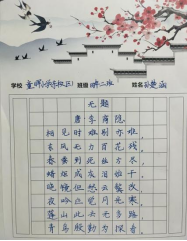 学校 童晖小学(东校区) 班级 四二班 姓名
无题
唐·李商隐
相见时难别亦难,
东风无力百花残。
春蚕到死丝方尽,
蜡炬成灰泪始干。
晓镜但愁云鬓改,
夜吟应觉月光寒。
蓬山此去无多路,
青鸟殷勤为探看。